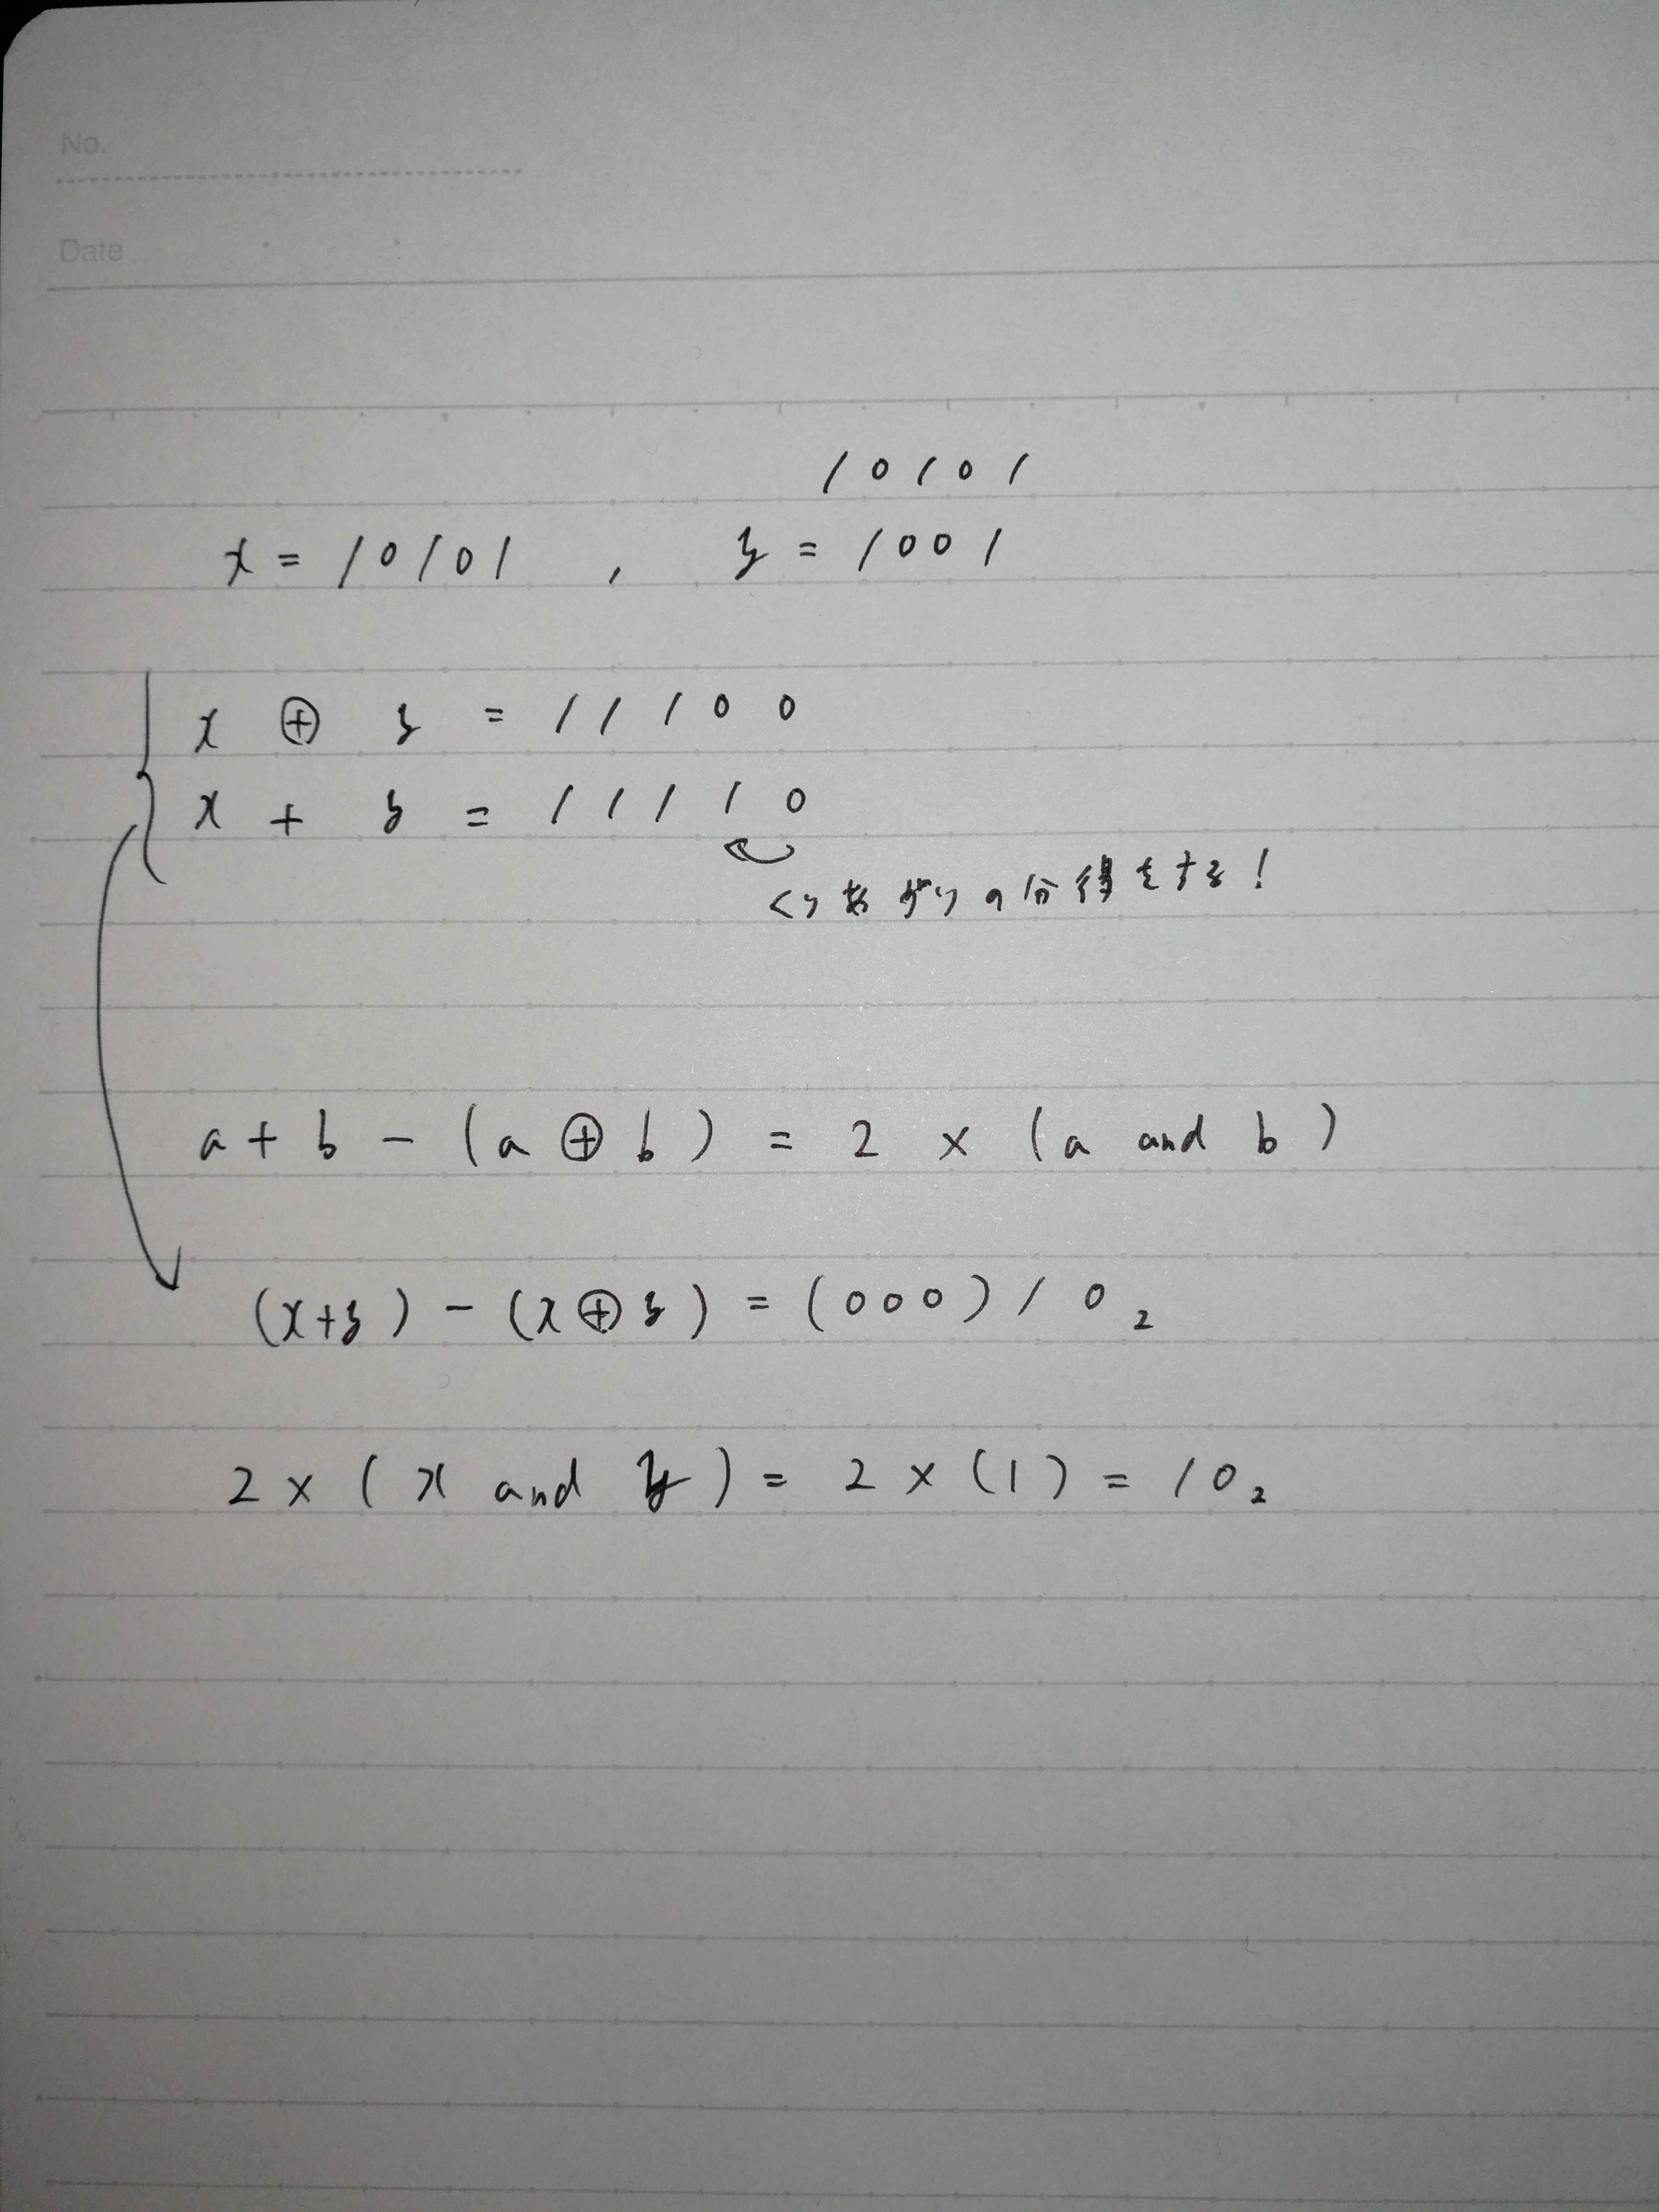 No.
Date
10101
x = 10101 , y = 1001
x ⊕ y = 11100
x + y = 11110
くり上がりの分得をする!
a + b - (a ⊕ b) = 2 × (a and b)
(x+y) - (x⊕y) = (000)10₂
2 × (x and y) = 2 × (1) = 10₂